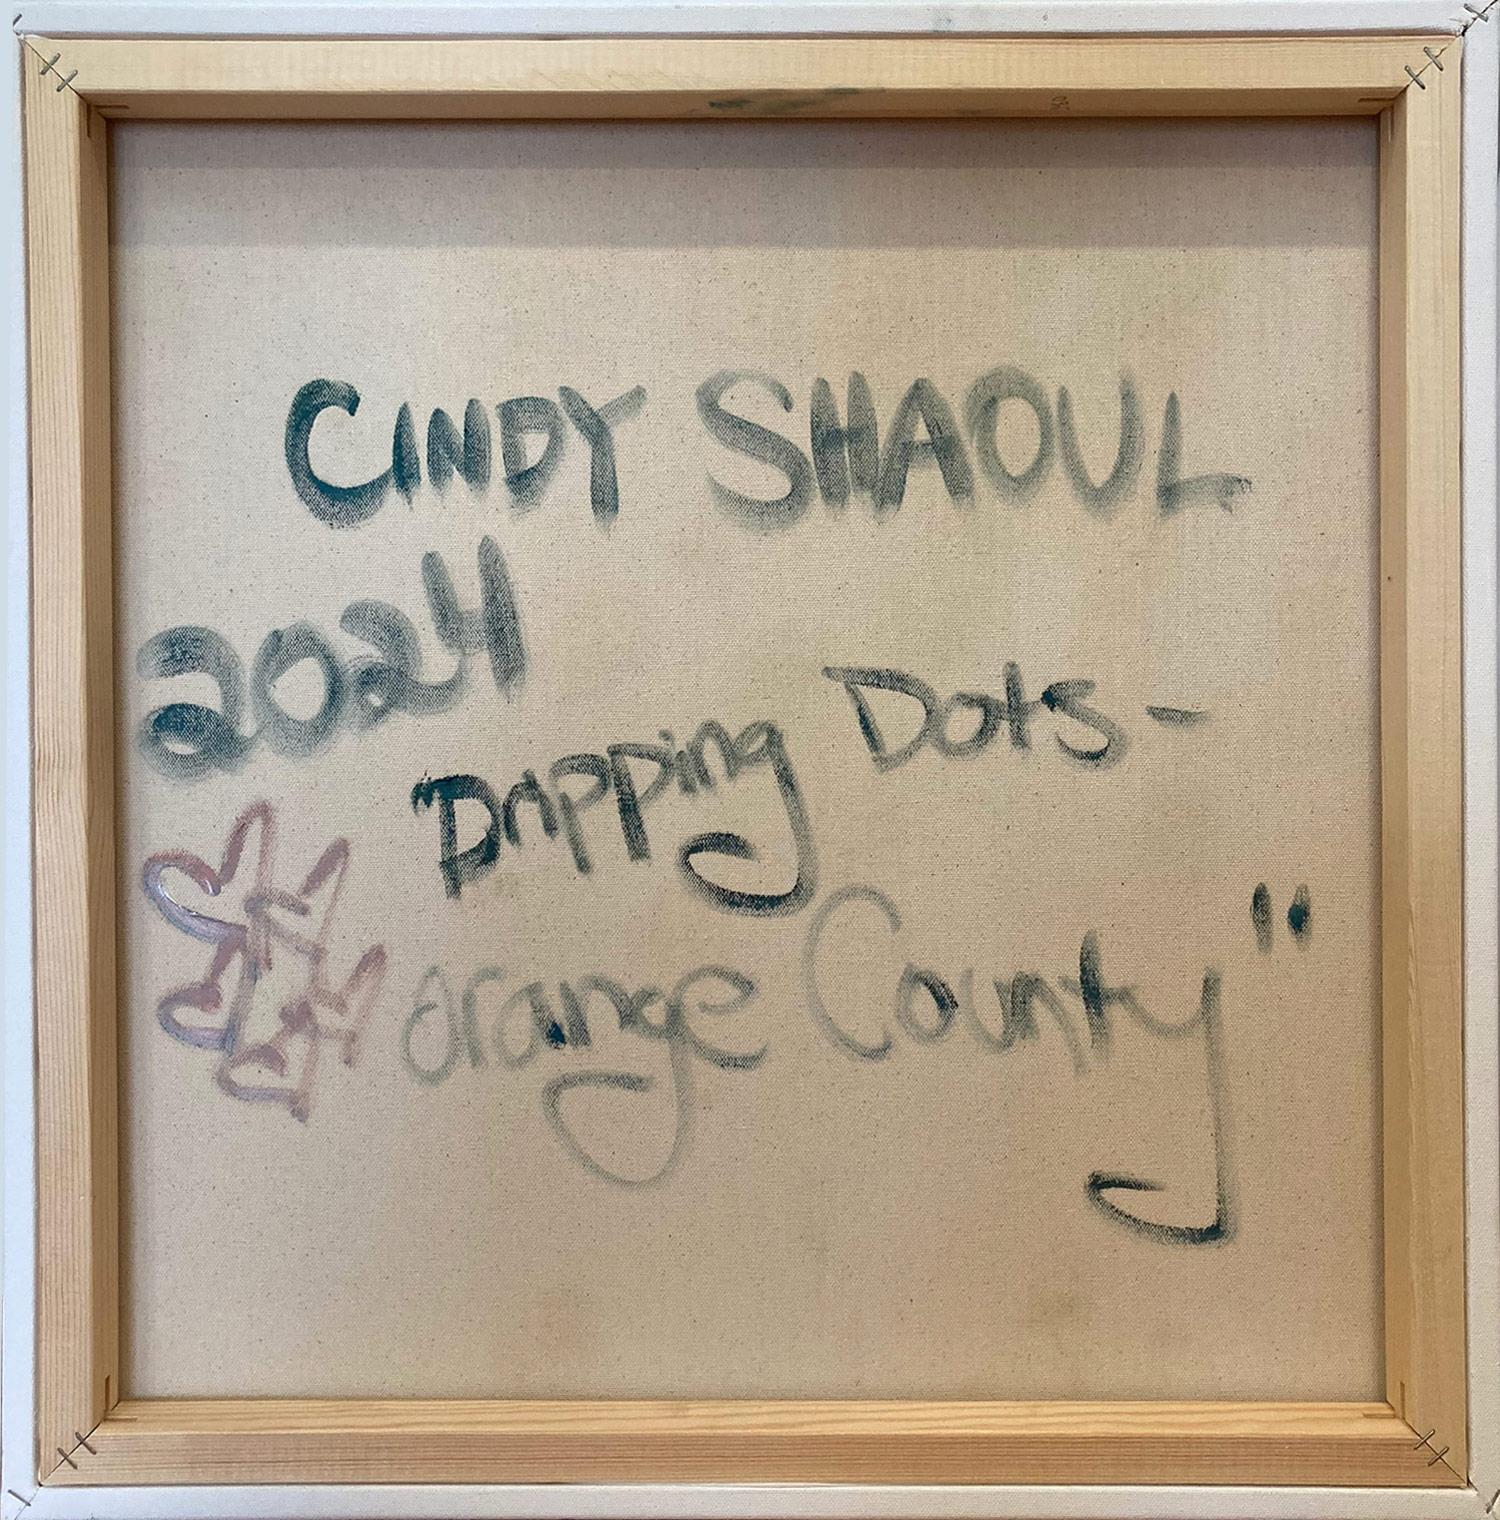 CINDY SHAOUL
2024
"Dripping Dots-
Orange County"